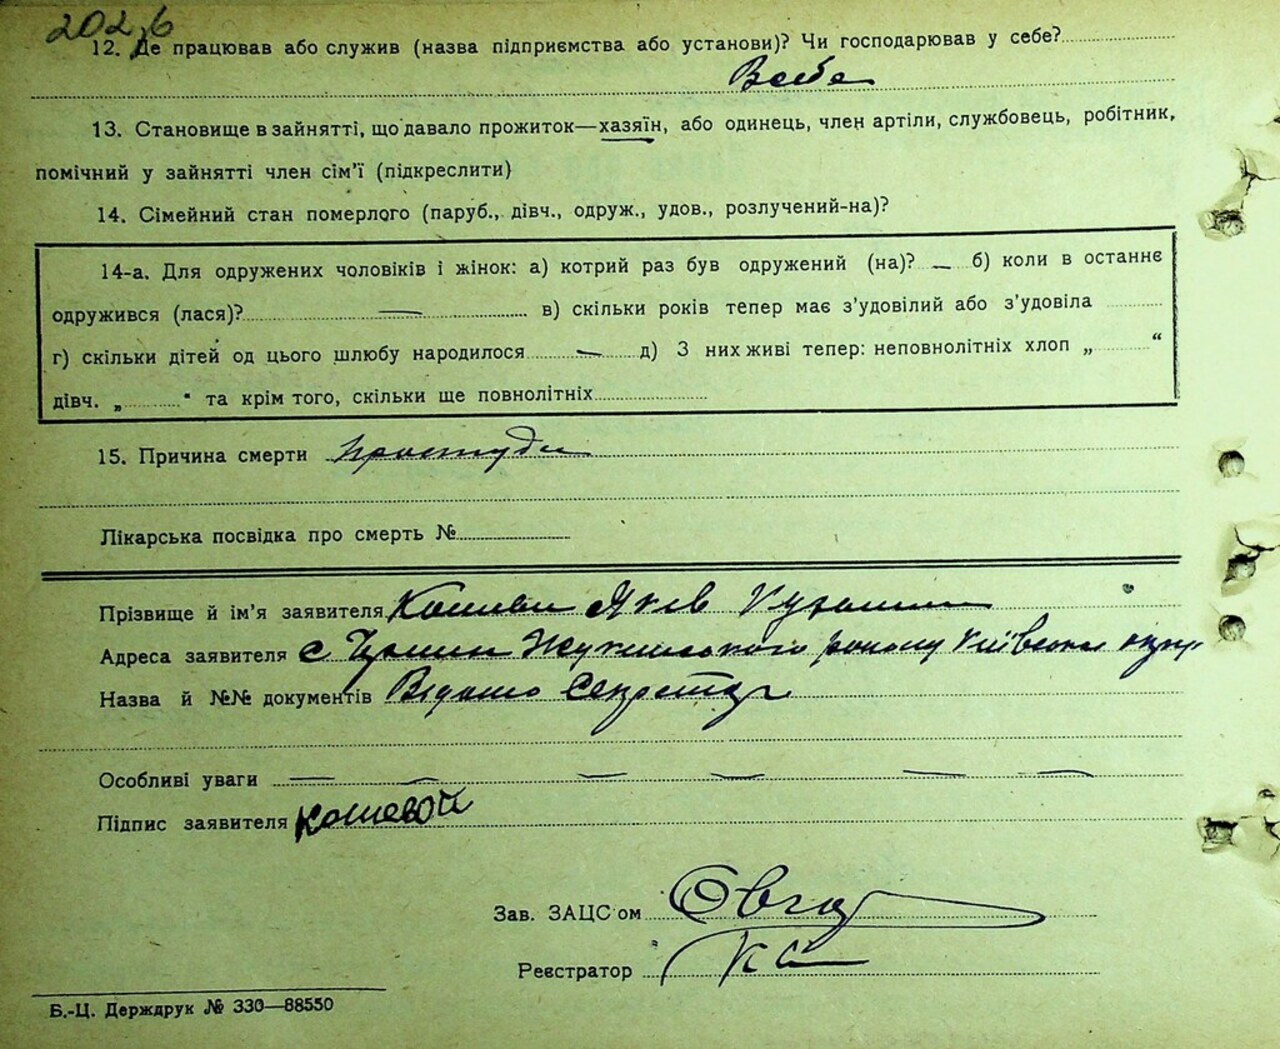 202б
12. Де працював або служив (назва підприємства або установи)? Чи господарював у себе?
В себе
13. Становище в зайнятті, що давало прожиток—хазяїн, або одинець, член артіли, службовець, робітник,
помічний у зайнятті член сім'ї (підкреслити)
14. Сімейний стан померлого (паруб., дівч., одруж., удов., розлучений-на)?
14-а. Для одружених чоловіків і жінок: а) котрий раз був одружений (на)? — б) коли в останнє
одружився (лася)? — в) скільки років тепер має з'удовілий або з'удовіла
г) скільки дітей од цього шлюбу народилося — д) З них живі тепер: неповнолітніх хлоп „ “
дівч. „ “ та крім того, скільки ще повнолітніх
15. Причина смерти простуди
Лікарська посвідка про смерть №
Прізвище й ім'я заявителя Яків
Адреса заявителя с. району Київської округ
Назва й №№ документів Відомо Секретар
Особливі уваги — — — — — —
Підпис заявителя Кошевой
Зав. ЗАЦС'ом
Реєстратор
Б.-Ц. Держдрук № 330—88550